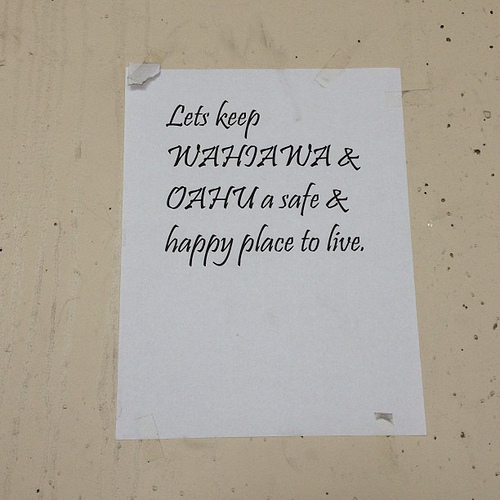 Lets keep
WAHIAWA &
OAHU a safe &
happy place to live.